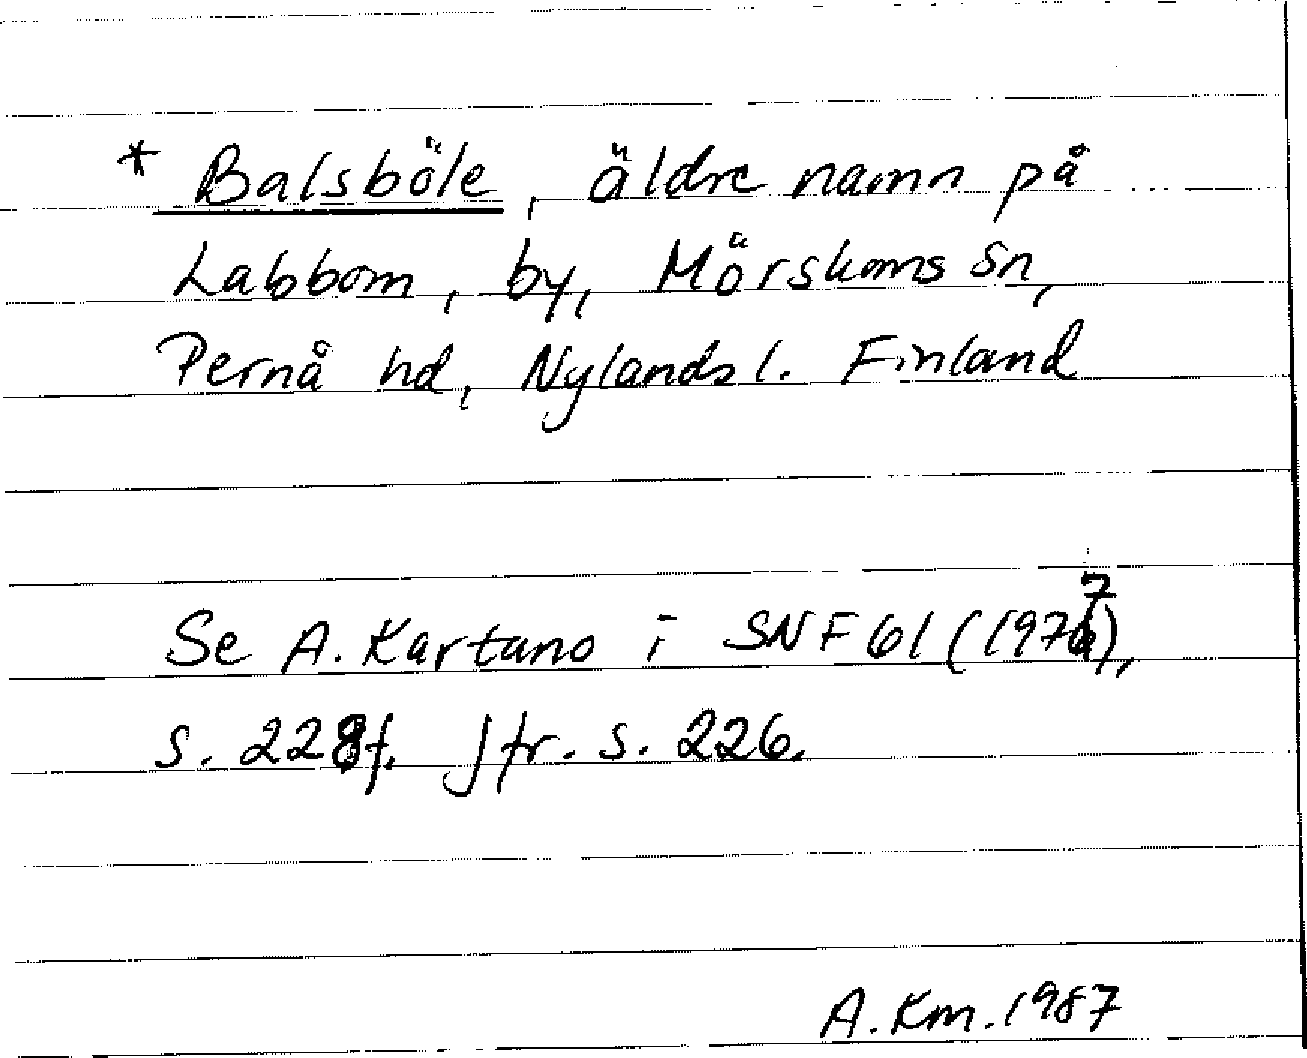 * Balsböle, äldre namn på
Labbom, by, Mörskoms sn,
Pernå hd, Nylands l. Finland
Se A. Kartano i SNF 61 (1977),
s. 228f. Jfr. s. 226.
A. Km. 1987